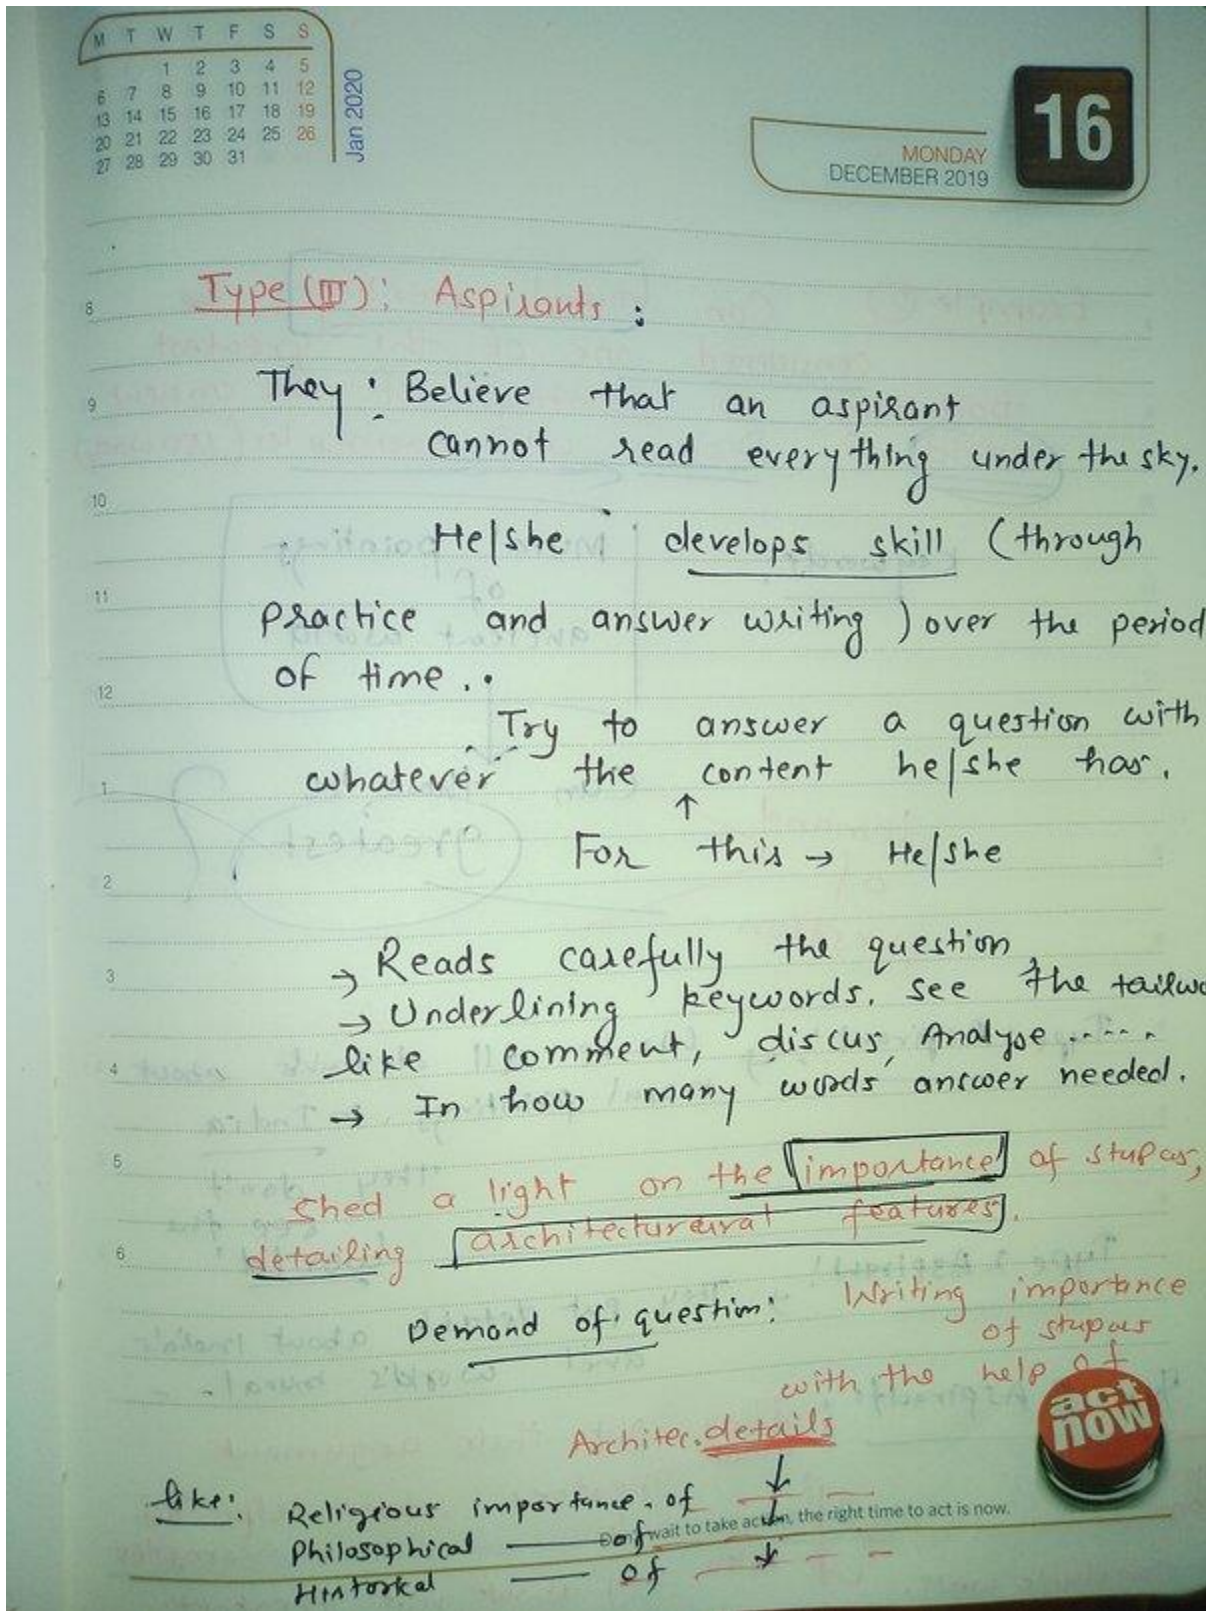 M T W T F S S
1 2 3 4 5
6 7 8 9 10 11 12
13 14 15 16 17 18 19
20 21 22 23 24 25 26
27 28 29 30 31
Jan 2020
16
MONDAY
DECEMBER 2019
Type (III): Aspirants :
8
They : Believe that an aspirant
9
cannot read everything under the sky.
10
He/she develops skill (through
11
practice and answer writing ) over the period
of time . .
12
Try to answer a question with
whatever the content he/she has.
1
↑
For this → He/she
2
→ Reads carefully the question
3
→ Underlining keywords. see the tailwo
like comment, discus, Analyse .....
4
→ In how many words answer needed.
5
shed a light on the importance of stupas,
detailing architectureural features.
6
Demand of question: Writing importance
of stupas
with the help of
Architec. details
act now
like: Religious importance. of
Don't wait to take action, the right time to act is now.
Philosophical —— of
Historkal —— of